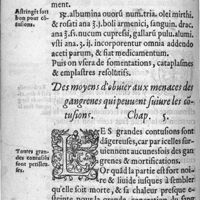 ment.
Astringẽs fort
bon pour cõ-
tusions.
℞. albumina ouorũ num.tria. olei mirthi.
& rosati ana ʒ j. boli armenici, sanguin. drac.
ana ʒ ß. nucum cupressi, gallarũ pulu. alumi.
vsti ana ʒ ij. incorporentur omnia addendo
aceti parum, & fiat medicamentum.
Puis on vsera de fomentations, cataplasmes
& emplastres resolutifs.
Des moyens d'obuier aux menaces des
gangrenes qui peuuent suiure les cõ-
tusions. Chap. 5.
Toutes gran-
des contusiõs
sont perilleu-
ses.
LES grandes contusions sont
dãgereuses, car par icelles sur-
uiennent aucunesfois des gan-
grenes & mortifications.
Or quãd la partie est fort noi-
re & liuide iusques à sembler
qu'elle soit morte, & sa chaleur presque e-